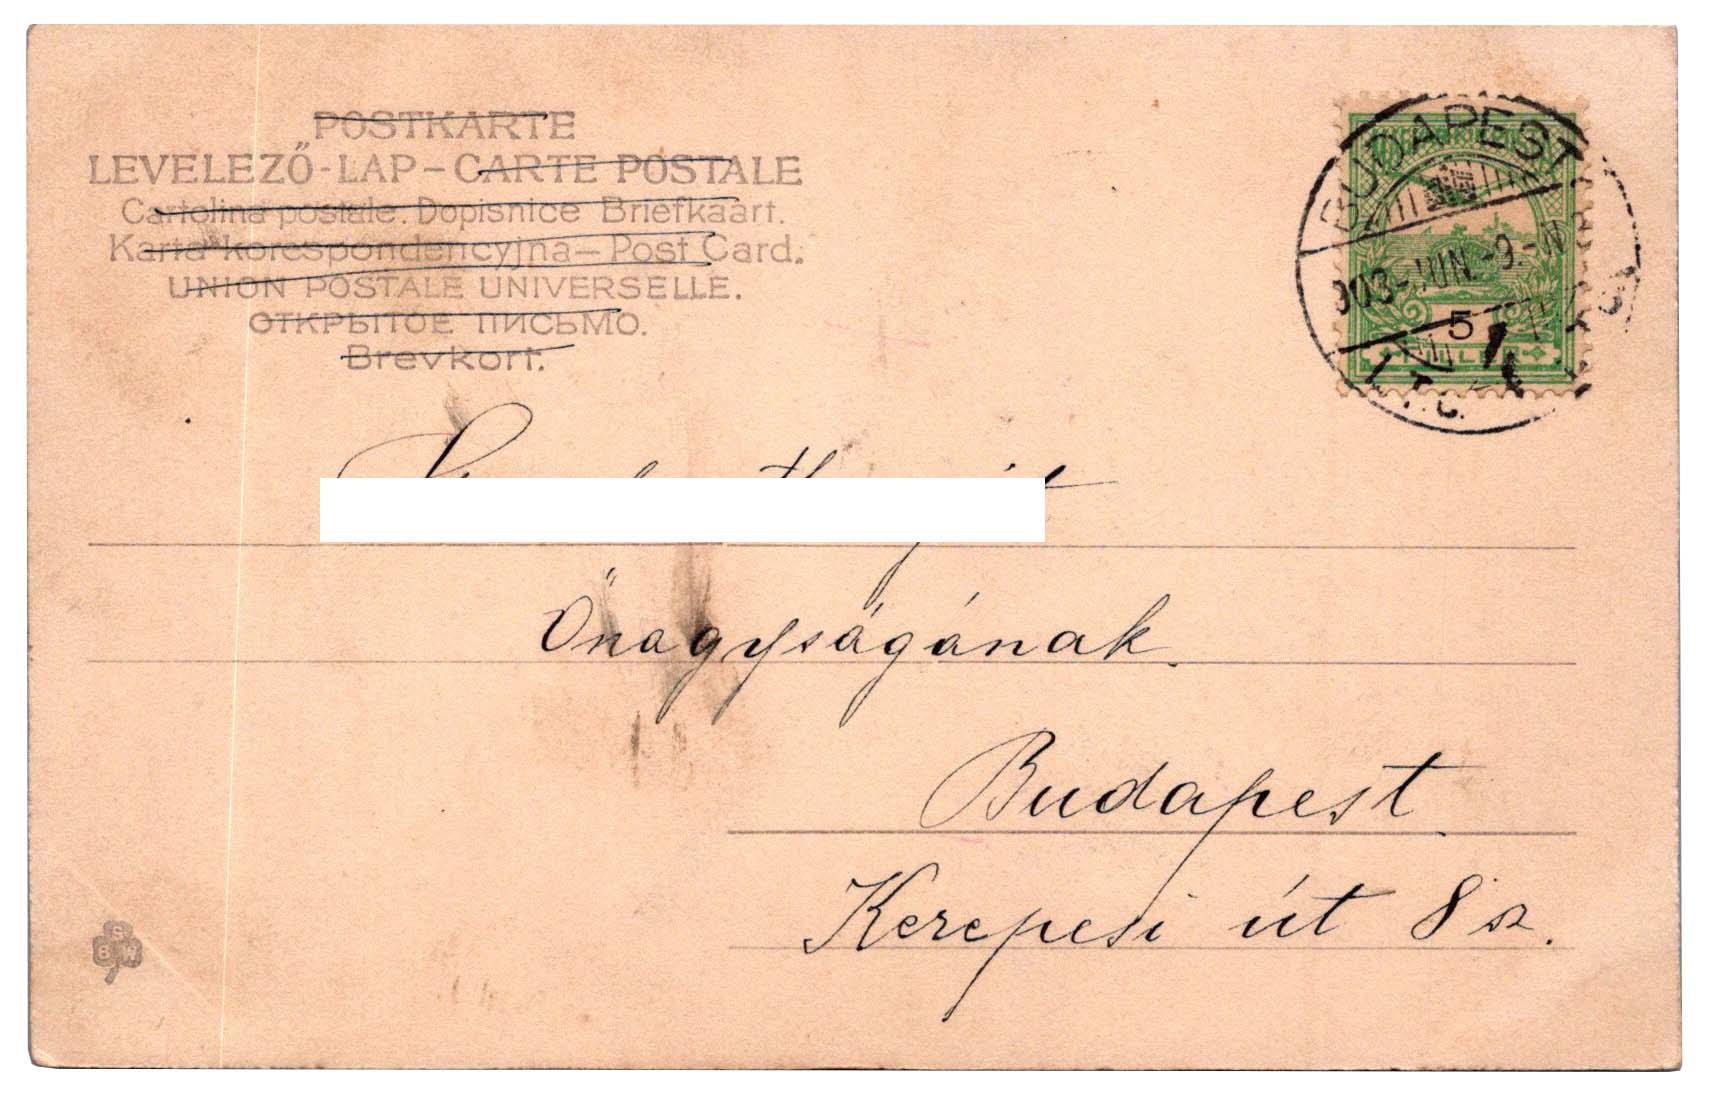 POSTKARTE
LEVELEZŐ-LAP-CARTE POSTALE
Cartolina postale. Dopisnice Briefkaart.
Karta korespondencyjna-Post Card.
UNION POSTALE UNIVERSELLE.
ОТКРЫТОЕ ПИСЬМО.
Brevkort.
BUDAPEST
903-JUN.-9.-N
5
Önagyságának.
Budapest.
Kerepesi út 8 sz.
S
B W